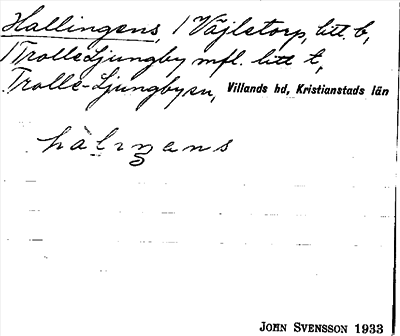 Hallingens, 1 Väjletorp, litt. b,
1 Trolle Ljungby mfl. litt t,
Trolle-Ljungby sn, Villands hd, Kristianstads län
hàlıŋens
JOHN SVENSSON 1933